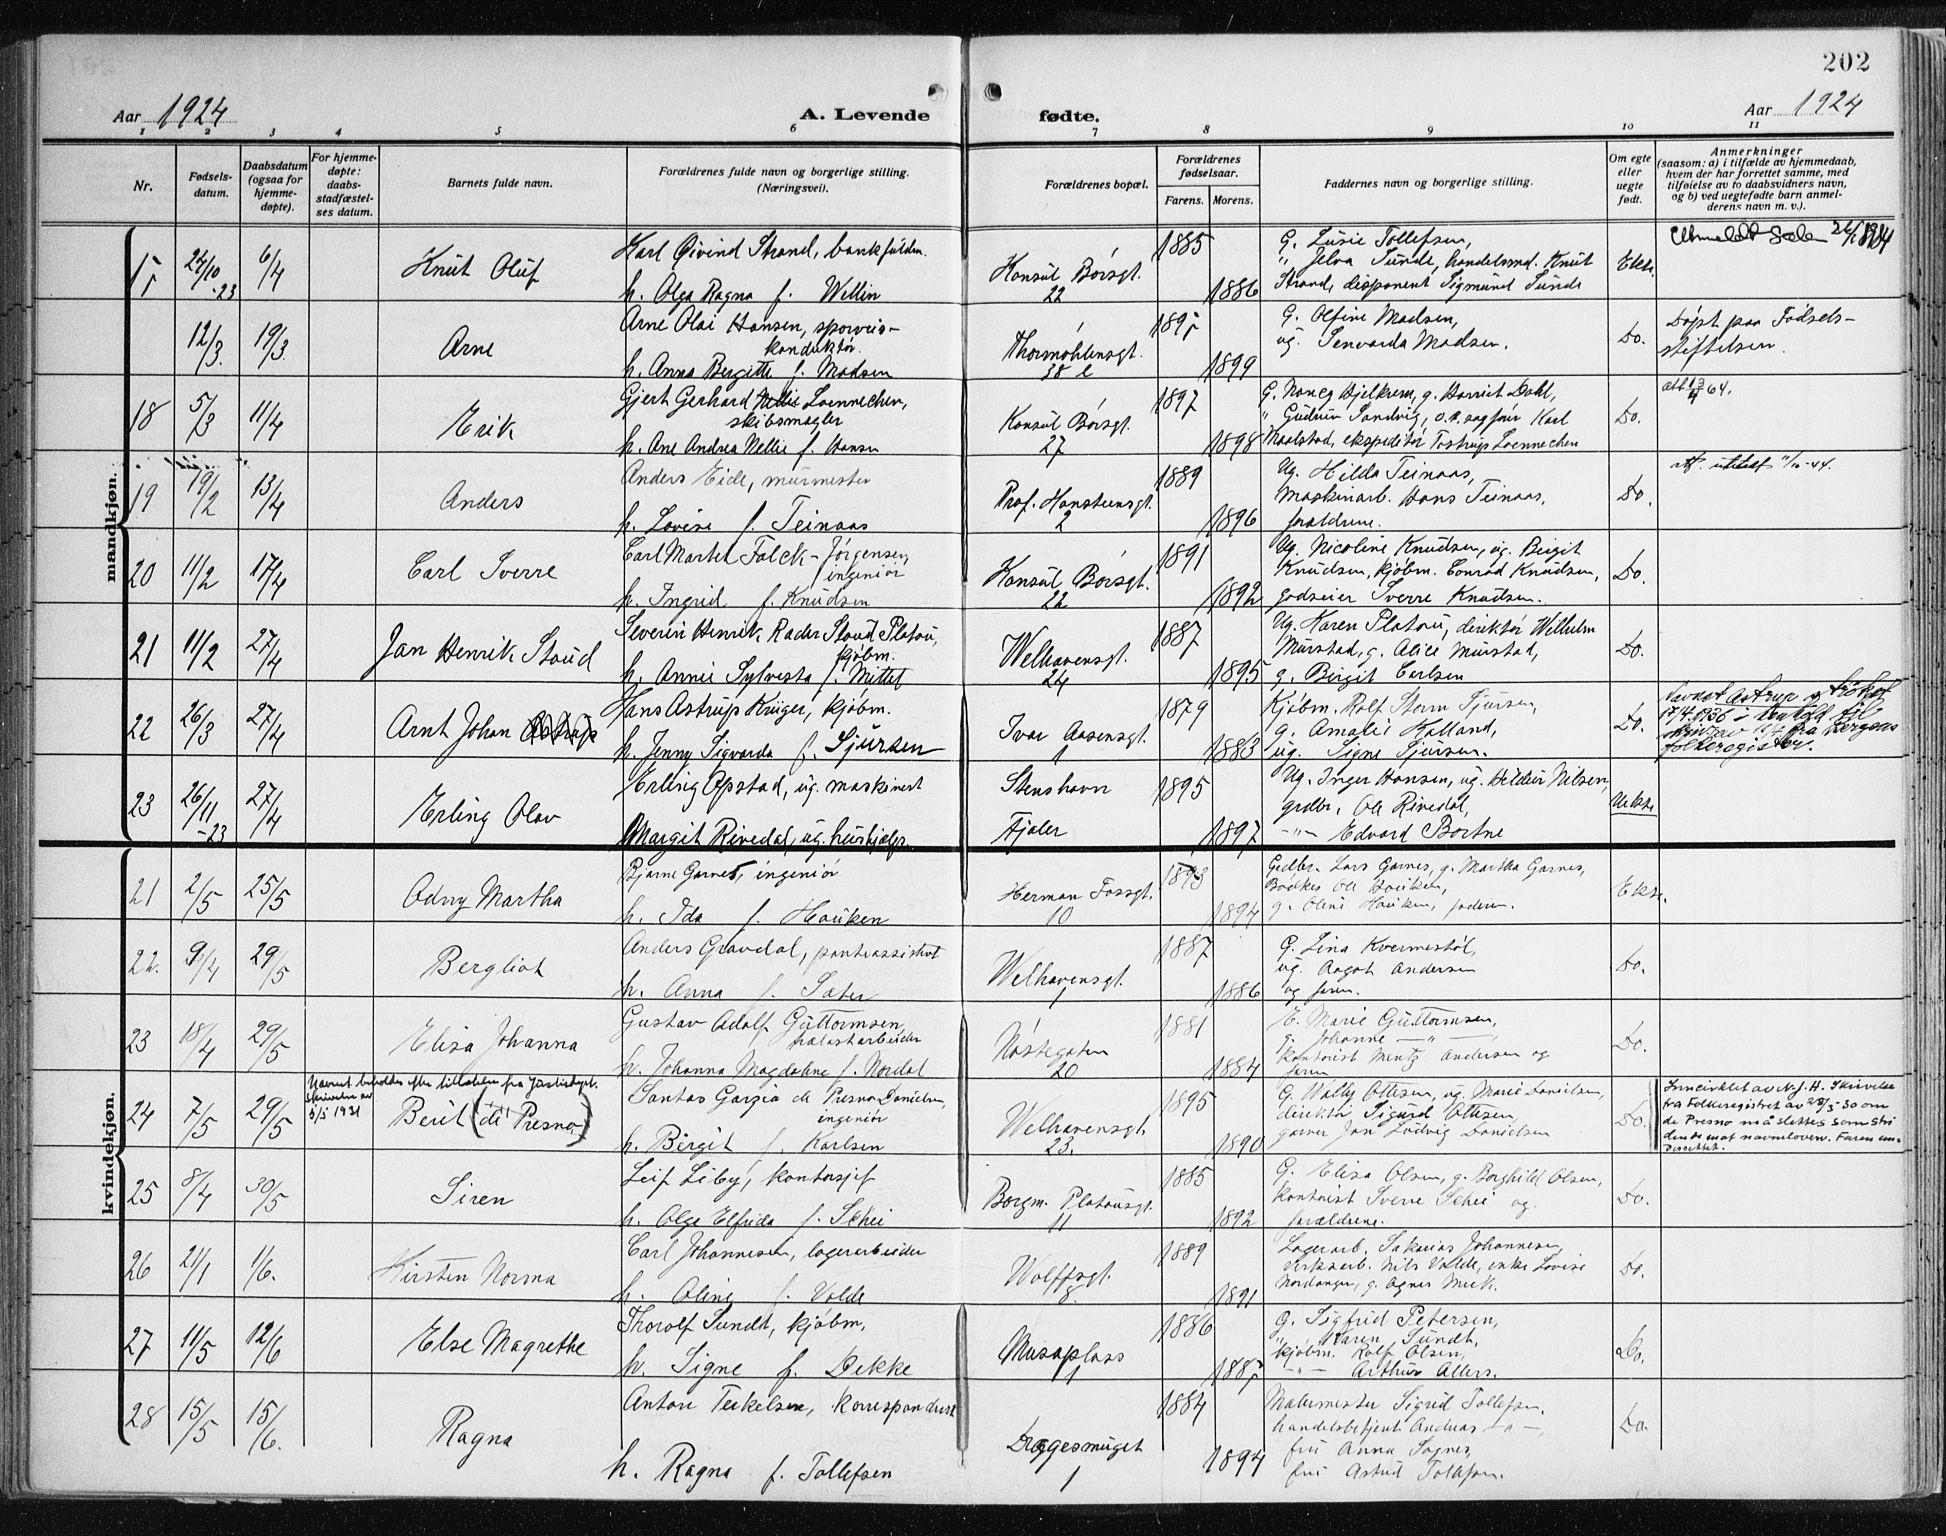 202
Aar 1924
A. Levende fødte.
Aar 1924
1 2 3 4 5 6 7 8 9 10 11
Nr.
Fødsels-
datum.
Daabsdatum
(ogsaa for
hjemme-
døpte).
For hjemme-
døpte:
daabs-
stadfæstel-
ses datum.
Barnets fulde navn.
Forældrenes fulde navn og borgerlige stilling.
(Næringsvei).
Forældrenes bopæl.
Forældrenes
fødselsaar.
Farens. Morens.
Faddernes navn og borgerlige stilling.
Om egte
eller
uegte
født.
Anmerkninger
(saasom: a) i tilfælde av hjemmedaab,
hvem der har forrettet samme, med
tilføielse av to daabsvidners navn,
og b) ved uegtefødte barn anmel-
derens navn m. v.).
mandkjøn.
24/10 -23 6/4 Knut Oluf
Karl Øivind Strand, bankfuldm.
h. Olga Ragna f. Wellin
Konsul Børsgt.
22
1885 1886
G. Lusie Tollefsen,
" Jelva Sunde, handelsmd. Knut
Strand, disponent Sigmund Sunde
Ekte.
12/3 19/3 Arne
Arne Olai Hansen, sporveis-
konduktør
h. Anna Bergitte f. Madsen
Thormøhlensgt.
38
1899
G. Olfine Madsen,
ug. Senvarda Madsen.
Do.
Døpt paa Fødsels-
stiftelsen.
18 5/3 11/4 Erik
Gjert Gerhard Loennechen,
skibsmegler
h. Ane Andrea Nellie f. Hansen
Konsul Børsgt.
27
1897 1898
G. Nancy Hjelkrem, g. Harriet Dahl,
" Gudrun Sandvig, o.r. sagfører Karl
Maalstad, ekspeditør Tostrup Loennechen
Do.
19 19/2 13/4 Anders
Anders Eide, murmester
h. Lovise f. Teinaas
Prof. Hansteensgt.
2
1889 1896
Ug. Hilda Teinaas,
Maskinarb. Hans Teinaas,
forældrene.
Do.
att. utstedt 11/10-44.
20 11/2 17/4 Carl Sverre
Carl Martel Falck-Jørgensen,
ingeniør
h. Ingrid f. Knudsen
Konsul Børsgt.
22
1891 1892
Ug. Nicoline Knudsen, ug. Birgit
Knudsen, kjøbm. Conrad Knudsen,
godseier Sverre Knudsen.
Do.
21 11/2 27/4 Jan Henrik Stoud
Severin Henrik Rader Stoud Platou,
kjøbm.
h. Annie Sylvesta f. Mittet
Welhavensgt.
24
1887 1895
Ug. Karen Platou, direktør Wilhelm
Mürstad, g. Alice Mürstad,
g. Birgit Carlsen
Do.
22 26/3 27/4 Arnt Johan Astrup
Hans Astrup Krüger, kjøbm.
h. Jenny Sigvarda f. Sjursen
Ivar Aasensgt.
1
1879 1883
Kjøbm. Rolf Storm Sjursen,
g. Amalie Holland,
ug. Signe Sjursen.
Do.
Navnet Astrup strøket
17/4.1936 i henhold til
skriv av fra Bergens
folkeregister.
23 26/11 -23 27/4 Erling Olav
Erling Opstad, ug. maskinist
Margit Rivedal, ug. hushjelp.
Stenshavn
Fjaler
1895 1897
Ug. Inger Hansen, ug. Heldur Nilsen,
grdbr. Ole Rivedal,
-"- Edvard Bortne
Uekte
kvindekjøn.
21 2/5 25/5 Odny Martha
Bjarne Garnes, ingeniør
h. Ida f. Houken
Herman Fossgt.
10
1893 1894
Grdbr. Lars Garnes, g. Martha Garnes,
Bødker Ole Houken,
g. Oline Houken, faderen.
Ekte.
22. 9/4 29/5 Bergliot
Anders Gravdal, panteassistent
h. Anna f. Sæter
Welhavensgt.
1
1887 1886
G. Lina Kvermestøl,
ug. Aagot Andersen
og faren.
Do.
23 18/4 29/5 Elisa Johanna
Gustav Adolf Guttormsen,
h. Johanna Magdalene f. Nordal
Nøstegaten
20
1881 1884
E. Marie Guttormsen,
g. Johanne -"-
Kontorist Mentz Andersen og
faren
Do.
Navnet beholdes efter tillatelse fra Justisdept.
skrivelse av
5/5 1931
24 7/5 29/5 Berit (de Presno)
Santos Garzia de Presno Danielsen,
ingeniør
h. Birgit f. Karlsen
Welhavensgt.
23.
1895 1890
G. Wally Ottesen, ug. Marie Danielsen,
direktør Sigurd Ottesen,
garver Jan Ludvig Danielsen
Do.
Inncirklet av N.J.H. Skrivelse
fra Folkeregistret av 28/5 30 om
de Presno må slettes som stri
dende mot navneloven. Faren un-
derrettet.
25 8/4 30/5 Siren
Leif Liby, kontorsjef
h. Olga Elfrida f. Schei
Borgm. Platousgt.
11
1885 1892
G. Elisa Olsen, g. Borghild Olsen,
Kontorist Sverre Schei og
forældrene.
Do.
26 21/1 1/6. Kirsten Norma
Carl Johannesen, lagerarbeider
h. Oline f. Valde
Wolffsgt.
8.
1889 1891
Lagerarb. Sakarias Johannesen,
Nils Valde, enke Lovise
Nordanger, g. Agnes Meek.
Do.
27 11/5 12/6 Else Magrethe
Thorolf Sundt, kjøbm,
h. Signe f. Dekke
Museplass
1
1886
G. Sigfrid Petersen,
" Karen Sundt,
kjøbm. Rolf Olsen,
-"- Arthur Allers.
Do.
28 15/5 15/6. Ragna
Anton Terkelsen, korrespondent
h. Ragna f. Tollefsen
Dreggesmuget
1
1884 1894
Malermester Sigrid Tollefsen,
handelsbetjent Andreas -"-,
fru Anna Sognes,
fru Astrid Tollefsen.
Do.